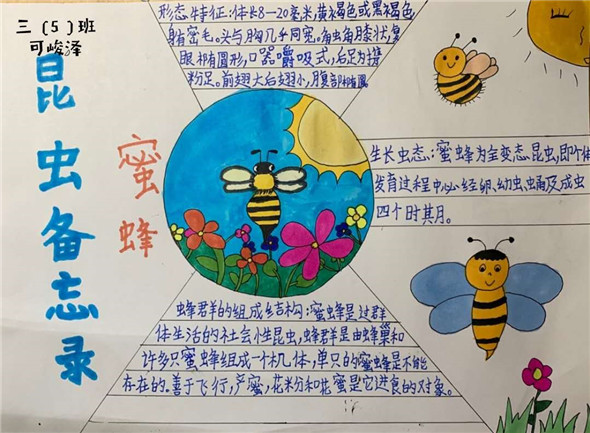 三（5）班
可峻泽
昆虫备忘录
蜜蜂
形态特征：体长8—20毫米，黄褐色或黑褐色，
身有密毛。头与胸几乎同宽。触角膝状，复
眼椭圆形，口器嚼吸式，后足为携
粉足。前翅大后翅小，腹部椭圆
生长虫态：蜜蜂为全变态昆虫，即个体
发育过程中必经卵、幼虫、蛹及成虫
四个时其月。
蜂君羊的组成结构：蜜蜂是过群
体生活的社会性昆虫，蜂群是由蜂巢和
许多只蜜蜂组成一个机体，单只的蜜蜂是不能
存在的。善于飞行，产蜜，花粉分和花蜜是它进食的对象。